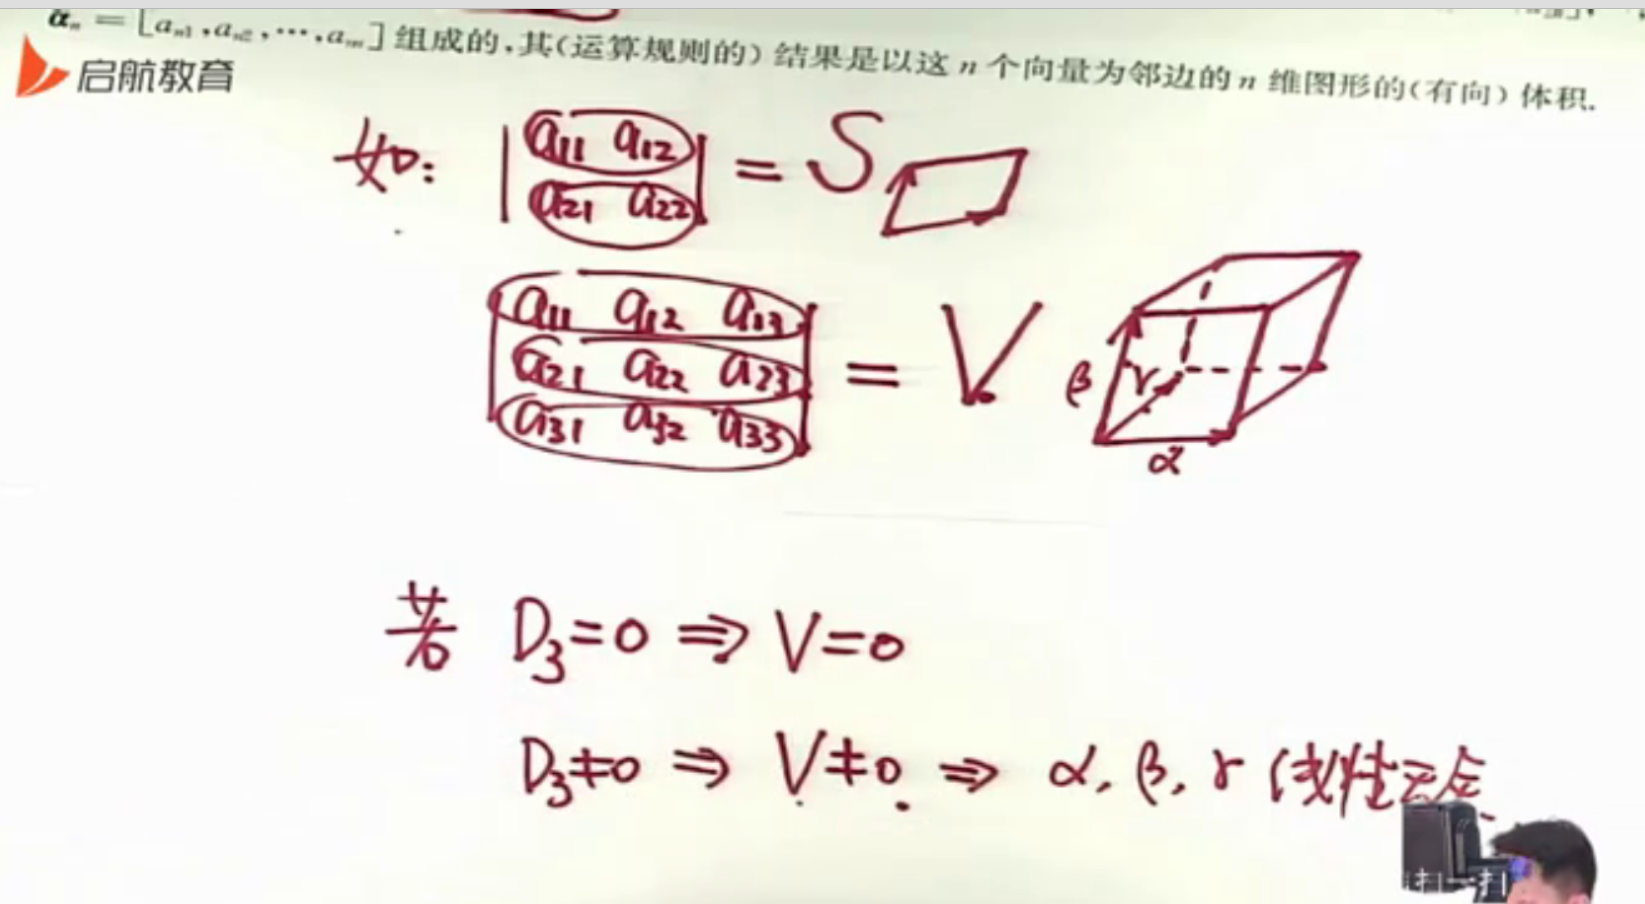 αₙ = [aₙ₁,aₙ₂,⋯,aₙₙ]组成的,其(运算规则的)结果是以这 n 个向量为邻边的 n 维图形的(有向)体积.
启航教育
如: | a₁₁ a₁₂ | = S
| a₂₁ a₂₂ |
| a₁₁ a₁₂ a₁₃ |
| a₂₁ a₂₂ a₂₃ | = V. β γ
| a₃₁ a₃₂ a₃₃ |
α
若 D₃=0 ⇒ V=0
D₃≠0 ⇒ V≠0 ⇒ α, β, γ 线性无关
扫一扫